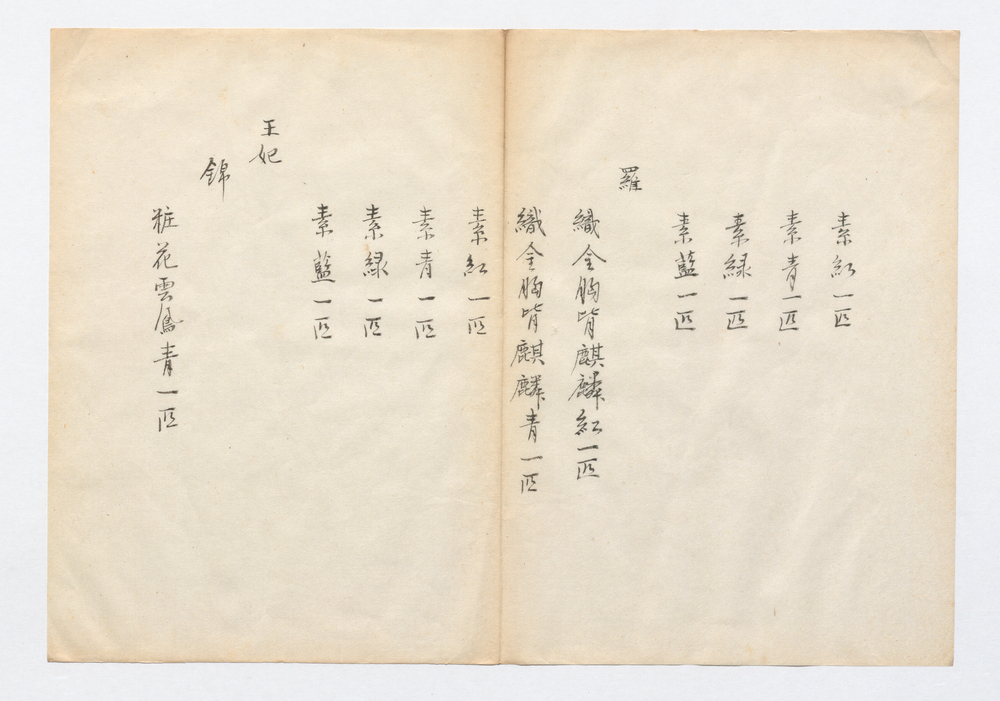 素紅一匹
素青一匹
素緑一匹
素藍一匹
羅
織金胸背麒麟紅一匹
織金胸背麒麟青一匹
素紅一匹
素青一匹
素緑一匹
素藍一匹
王妃
錦
粧花雲鳳青一匹